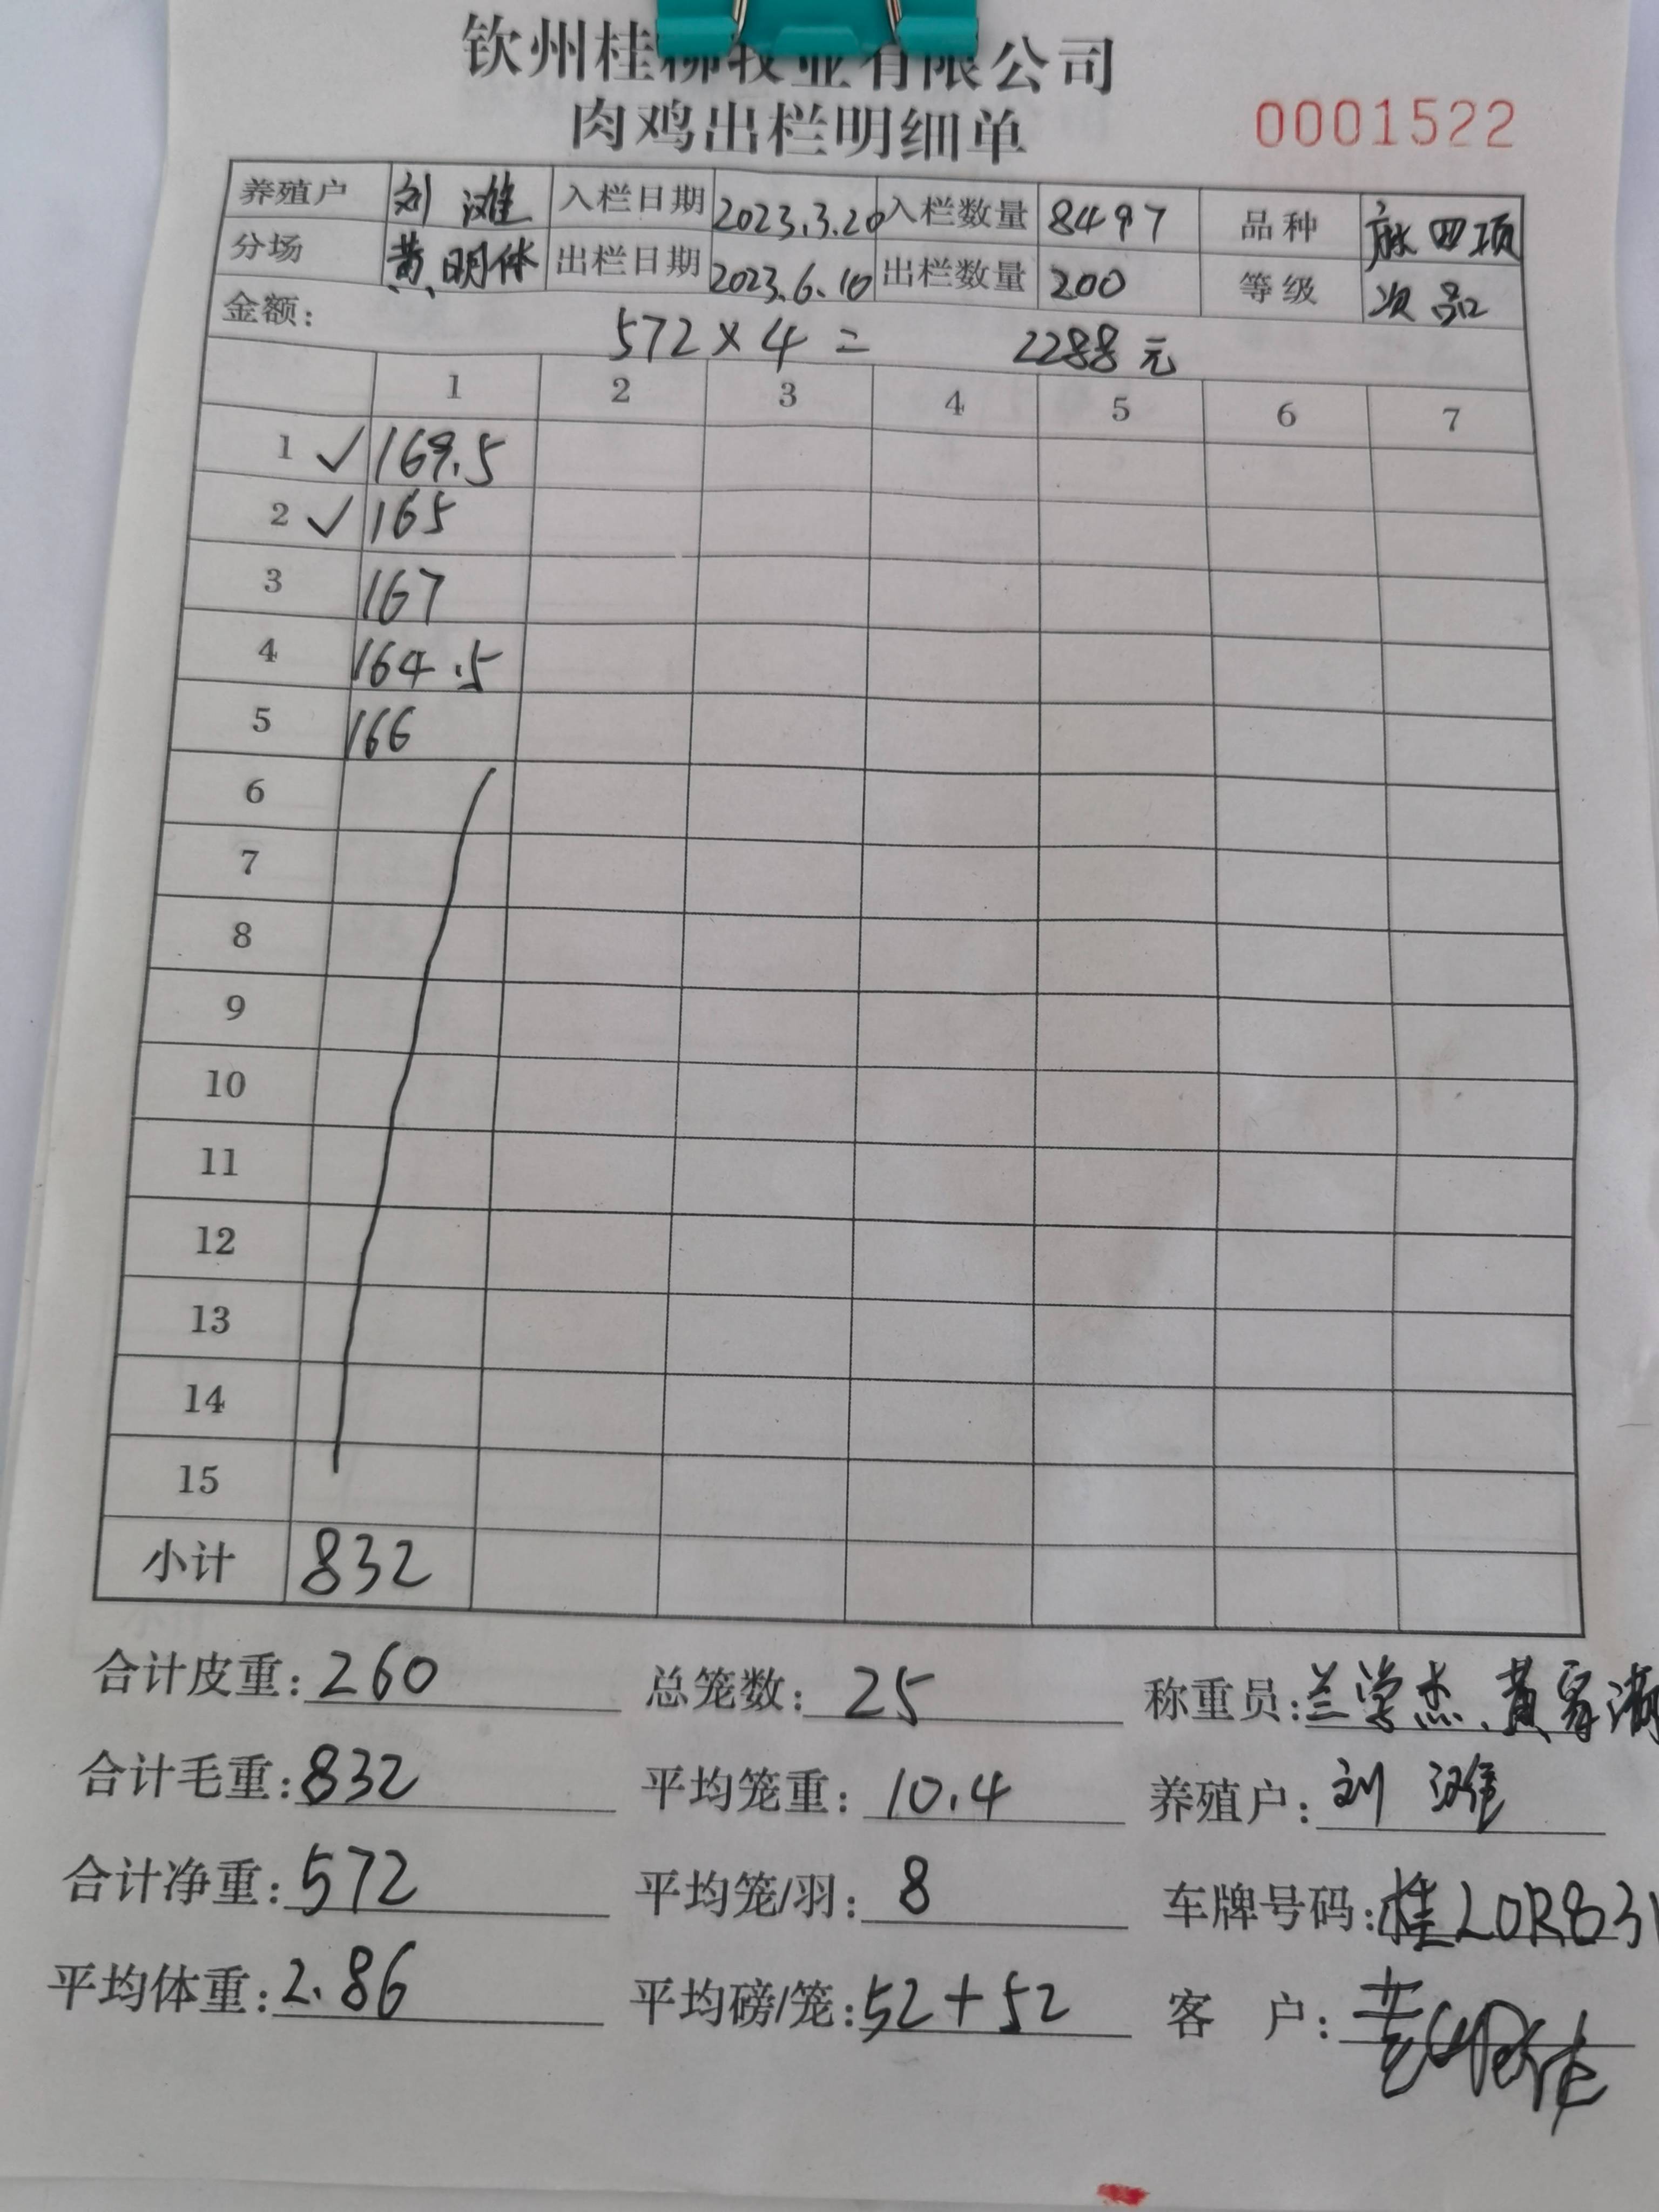 钦州桂柳牧业有限公司
肉鸡出栏明细单
0001522
养殖户 刘 滩 入栏日期 2023.3.20 入栏数量 8497 品种 麻四项
分场 黄明体 出栏日期 2023.6.10 出栏数量 200 等级 次品
金额: 572×4= 2288元
1 2 3 4 5 6 7
1 ✓ 169.5
2 ✓ 165
3 167
4 164.5
5 166
6
7
8
9
10
11
12
13
14
15
小计 832
合计皮重: 260 总笼数: 25 称重员: 兰学杰、黄家
合计毛重: 832 平均笼重: 10.4 养殖户: 刘 滩
合计净重: 572 平均笼/羽: 8 车牌号码: 桂L0R831
平均体重: 2.86 平均磅/笼: 52+52 客 户: